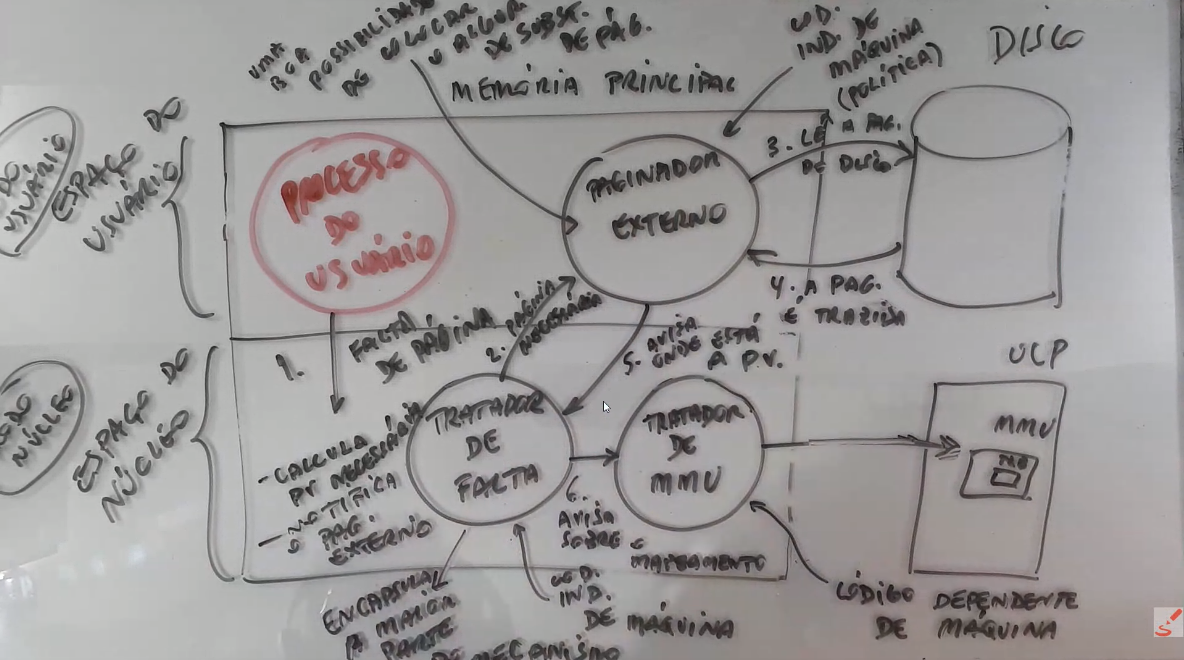 UMA
BOA
POSSIBILIDADE
DE COLOCAR
O ALGOR.
DE SUBST.
DE PÁG.
CÓD.
IND. DE
MÁQUINA
(POLÍTICA)
DISCO
MEMÓRIA PRINCIPAL
USUÁRIO
ESPAÇO DO
USUÁRIO
PROCESSO
DO
USUÁRIO
PAGINADOR
EXTERNO
3. LÊ A PAG.
DE DISCO
4. A PAG.
É TRAZIDA
1.
FALTA
DE PÁGINA
2. PÁGINA
NECESSÁRIA
5. AVISA
ONDE ESTÁ
A P.V.
UCP
NÚCLEO
ESPAÇO DO
NÚCLEO
- CALCULA
PV NECESSÁRIA
- NOTIFICA
O PAG.
EXTERNO
TRATADOR
DE
FALTA
TRATADOR
DE
MMU
MMU
6.
AVISA
SOBRE O
MAPEAMENTO
ENCAPSULA
A MAIOR
PARTE
DE MECANISMO
CÓD.
IND.
DE MÁQUINA
CÓDIGO DEPENDENTE
DE MÁQUINA